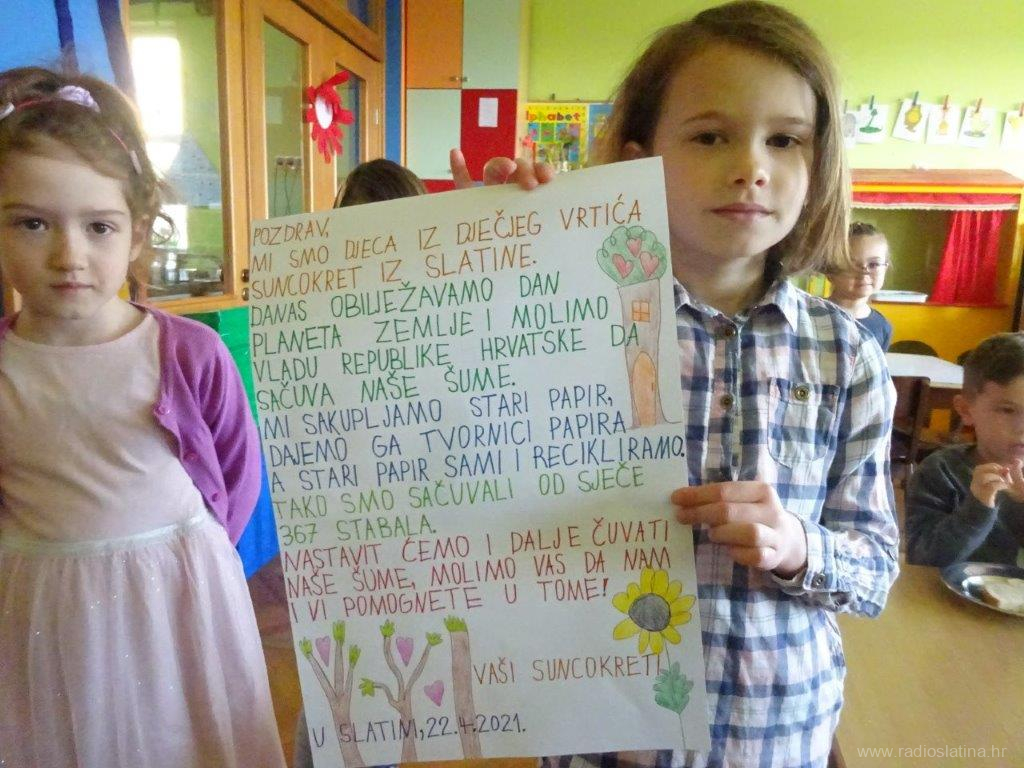 alphabet
POZDRAV,
MI SMO DJECA IZ DJEČJEG VRTIĆA
SUNCOKRET IZ SLATINE.
DANAS OBILJEŽAVAMO DAN
PLANETA ZEMLJE I MOLIMO
VLADU REPUBLIKE HRVATSKE DA
SAČUVA NAŠE ŠUME.
MI SAKUPLJAMO STARI PAPIR,
DAJEMO GA TVORNICI PAPIRA
A STARI PAPIR SAMI I RECIKLIRAMO.
TAKO SMO SAČUVALI OD SJEČE
367 STABALA.
NASTAVIT ĆEMO I DALJE ČUVATI
NAŠE ŠUME, MOLIMO VAS DA NAM
I VI POMOGNETE U TOME!
VAŠI SUNCOKRETI
U SLATINI, 22.4.2021.
www.radioslatina.hr